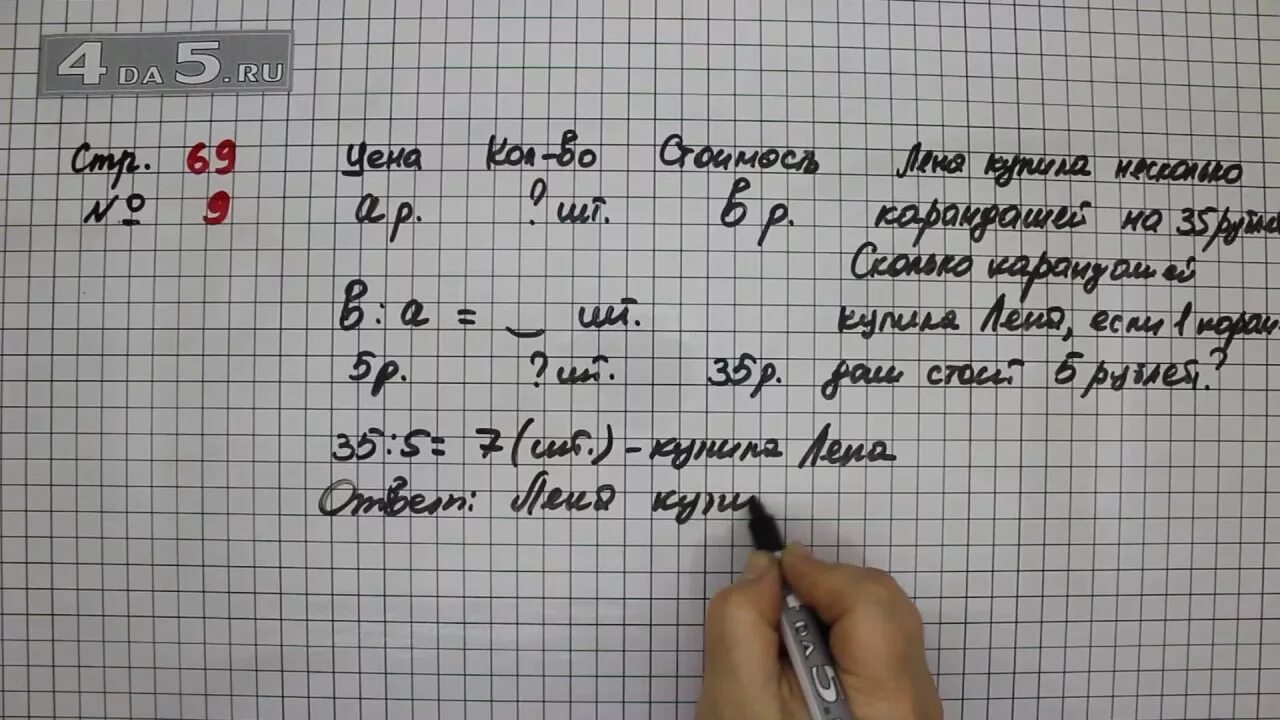 4DA5.RU
Стр. 69 Цена Кол-во Стоимость Лена купила несколько
№ 9 а р. ? шт. в р. карандашей на 35 рубле
Сколько карандашей
в : а = _ шт. купила Лена, если 1 каран-
5р. ? шт. 35р. даш стоит 5 рублей?
35:5= 7 (шт.) - купила Лена
Ответ: Лена купи
DA 5